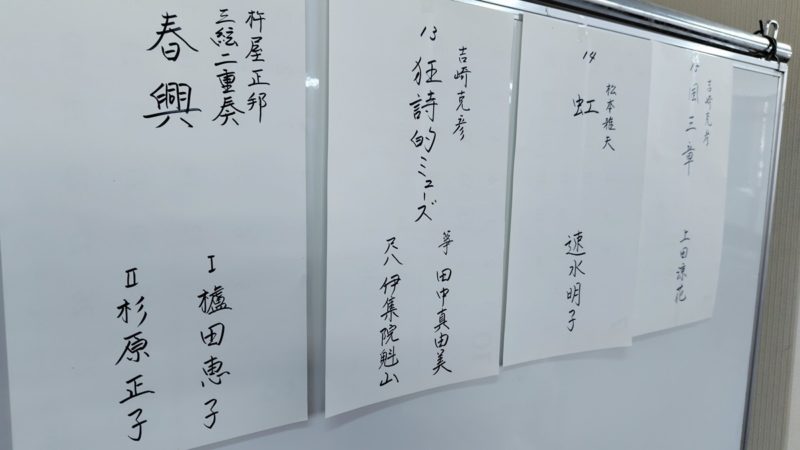 杵屋正邦
三絃二重奏
春興
I 櫨田恵子
II 杉原正子
吉崎克彦
13 狂詩的ミューズ
箏 田中真由美
尺八 伊集院魁山
松本雅夫
14 虹
速水明子
吉崎克彦
国三章
上田涼花